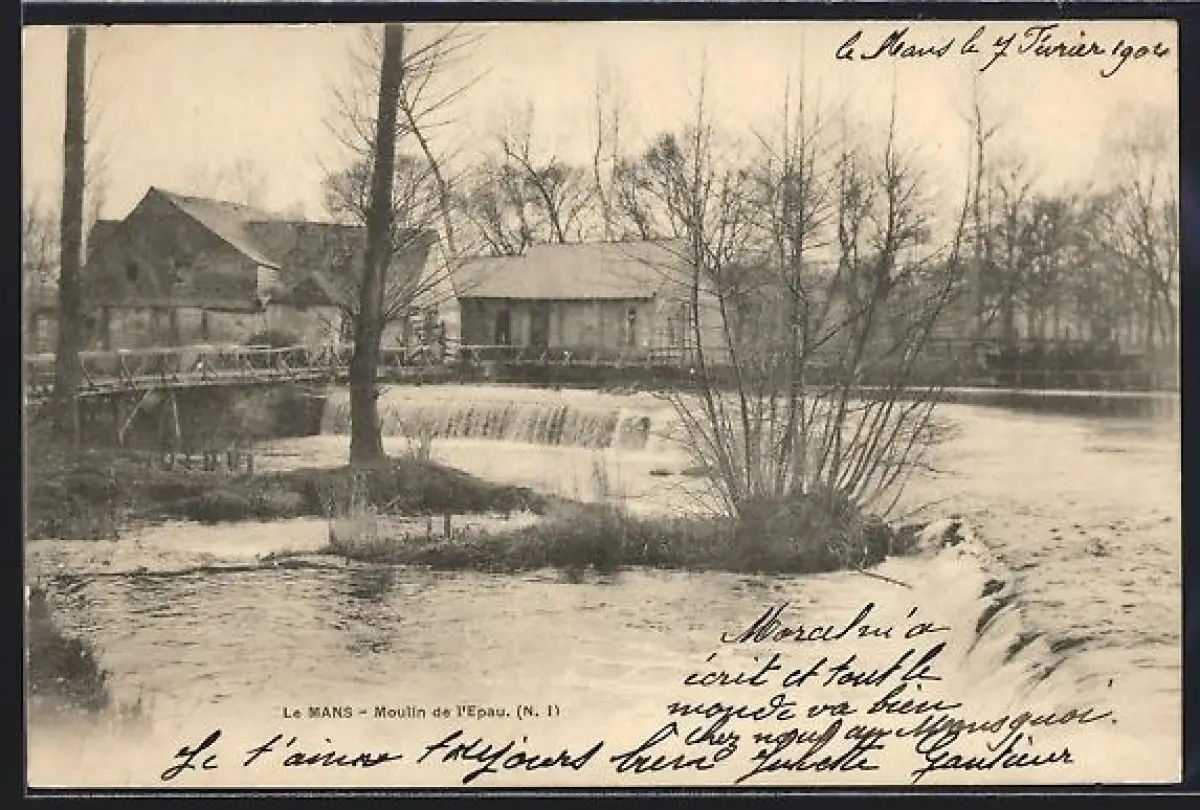 Le Mans le 7 Février 1904
Morcel m'a
écrit et tout le
monde va bien
chez nous
Le MANS - Moulin de l'Epau. (N. I)
Je t'aime toujours bien Juliette Gautier